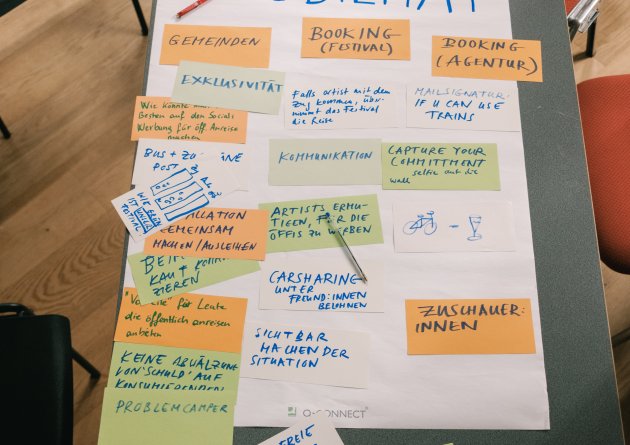 GEMEINDEN
BOOKING
(FESTIVAL)
BOOKING
(AGENTUR)
EXKLUSIVITÄT
Falls artist mit dem
Zug kommen, über-
nimmt das Festival
die Reise
MAILSIGNATUR:
IF U CAN USE
TRAINS
Wie könnte
Besten auf den Socials
Werbung für öff. Anreise
machen
BUS + ZU
POST
KOMMUNIKATION
CAPTURE YOUR
COMMITTMENT
selfie auf die
wall
WIE GRÜN
IST UNSER
FESTIVAL
GEMEINSAM
MACHEN/AUSLEIHEN
ARTISTS ERMU-
TIGEN, FÜR DIE
ÖFFIS ZU WERBEN
CARSHARING
UNTER
FREUND:INNEN
BELOHNEN
für Leute
die öffentlich anreisen
anbieten
ZUSCHAUER:
INNEN
SICHTBAR
MACHEN DER
SITUATION
KEINE ABWÄLZUNG
VON "SCHULD" AUF
KONSUMIERENDEN
PROBLEM CAMPER
Q-CONNECT
FREIE